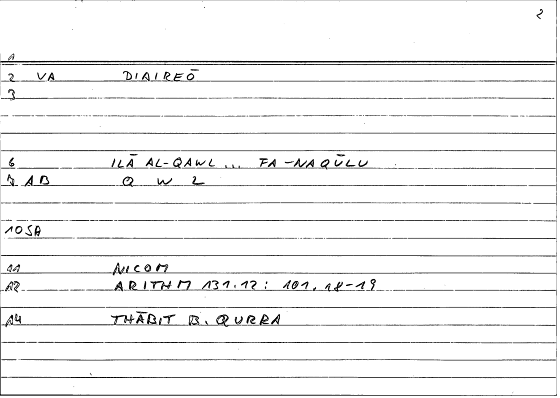 2
1
2 VA DIAIREŌ
3
6 ILĀ AL-QAWL ... FA-NAQŪLU
7 AB Q W L
10 SA
11 NICOM
12 ARITHM 131.12 : 101.18-19
14 THĀBIT B. QURRA